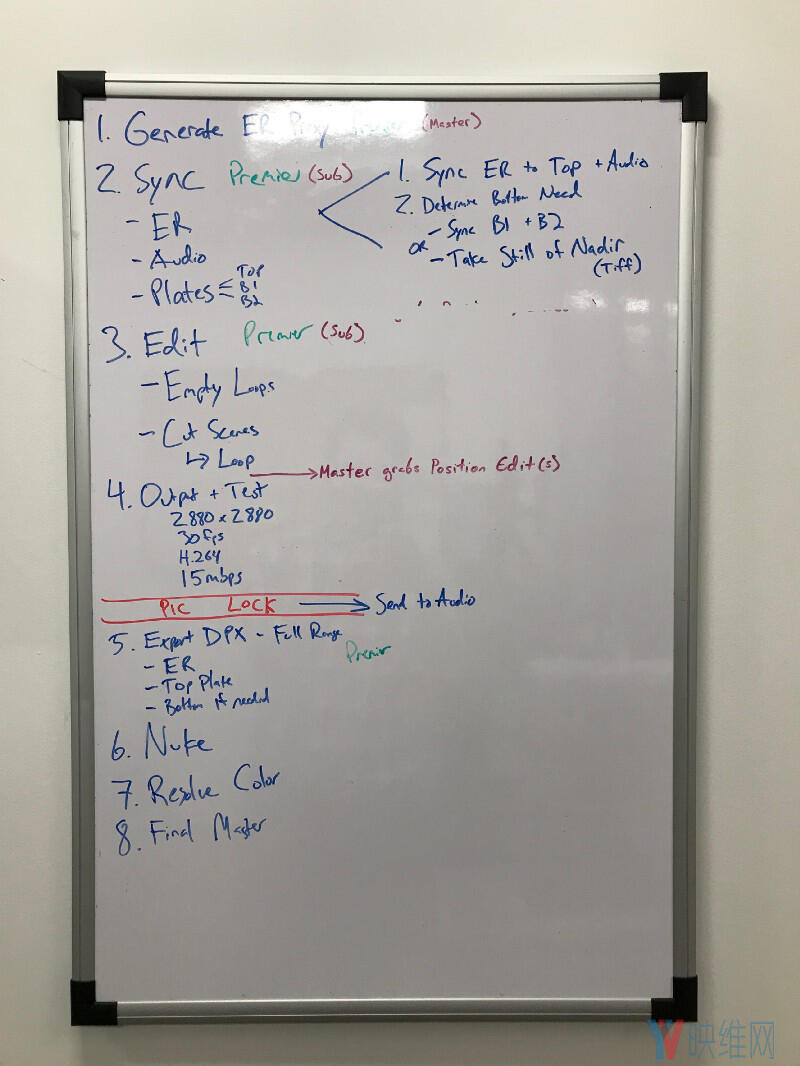 1. Generate ER Proxy (Master)
2. Sync Premier (Sub)
- ER
- Audio
- Plates
TOP
B1
B2
1. Sync ER to Top + Audio
2. Determine Bottom Need
- Sync B1 + B2
OR
- Take Still of Nadir
(Tiff)
3. Edit Premier (Sub)
- Empty Loops
- Cut Scenes
↳ Loop → Master grabs Position Edit(s)
4. Output + Test
2880 x 2880
30fps
H.264
15mbps
PIC LOCK → Send to Audio
5. Export DPX - Full Range
Premier
- ER
- Top Plate
- Bottom if needed
6. Nuke
7. Resolve Color
8. Final Master
映维网